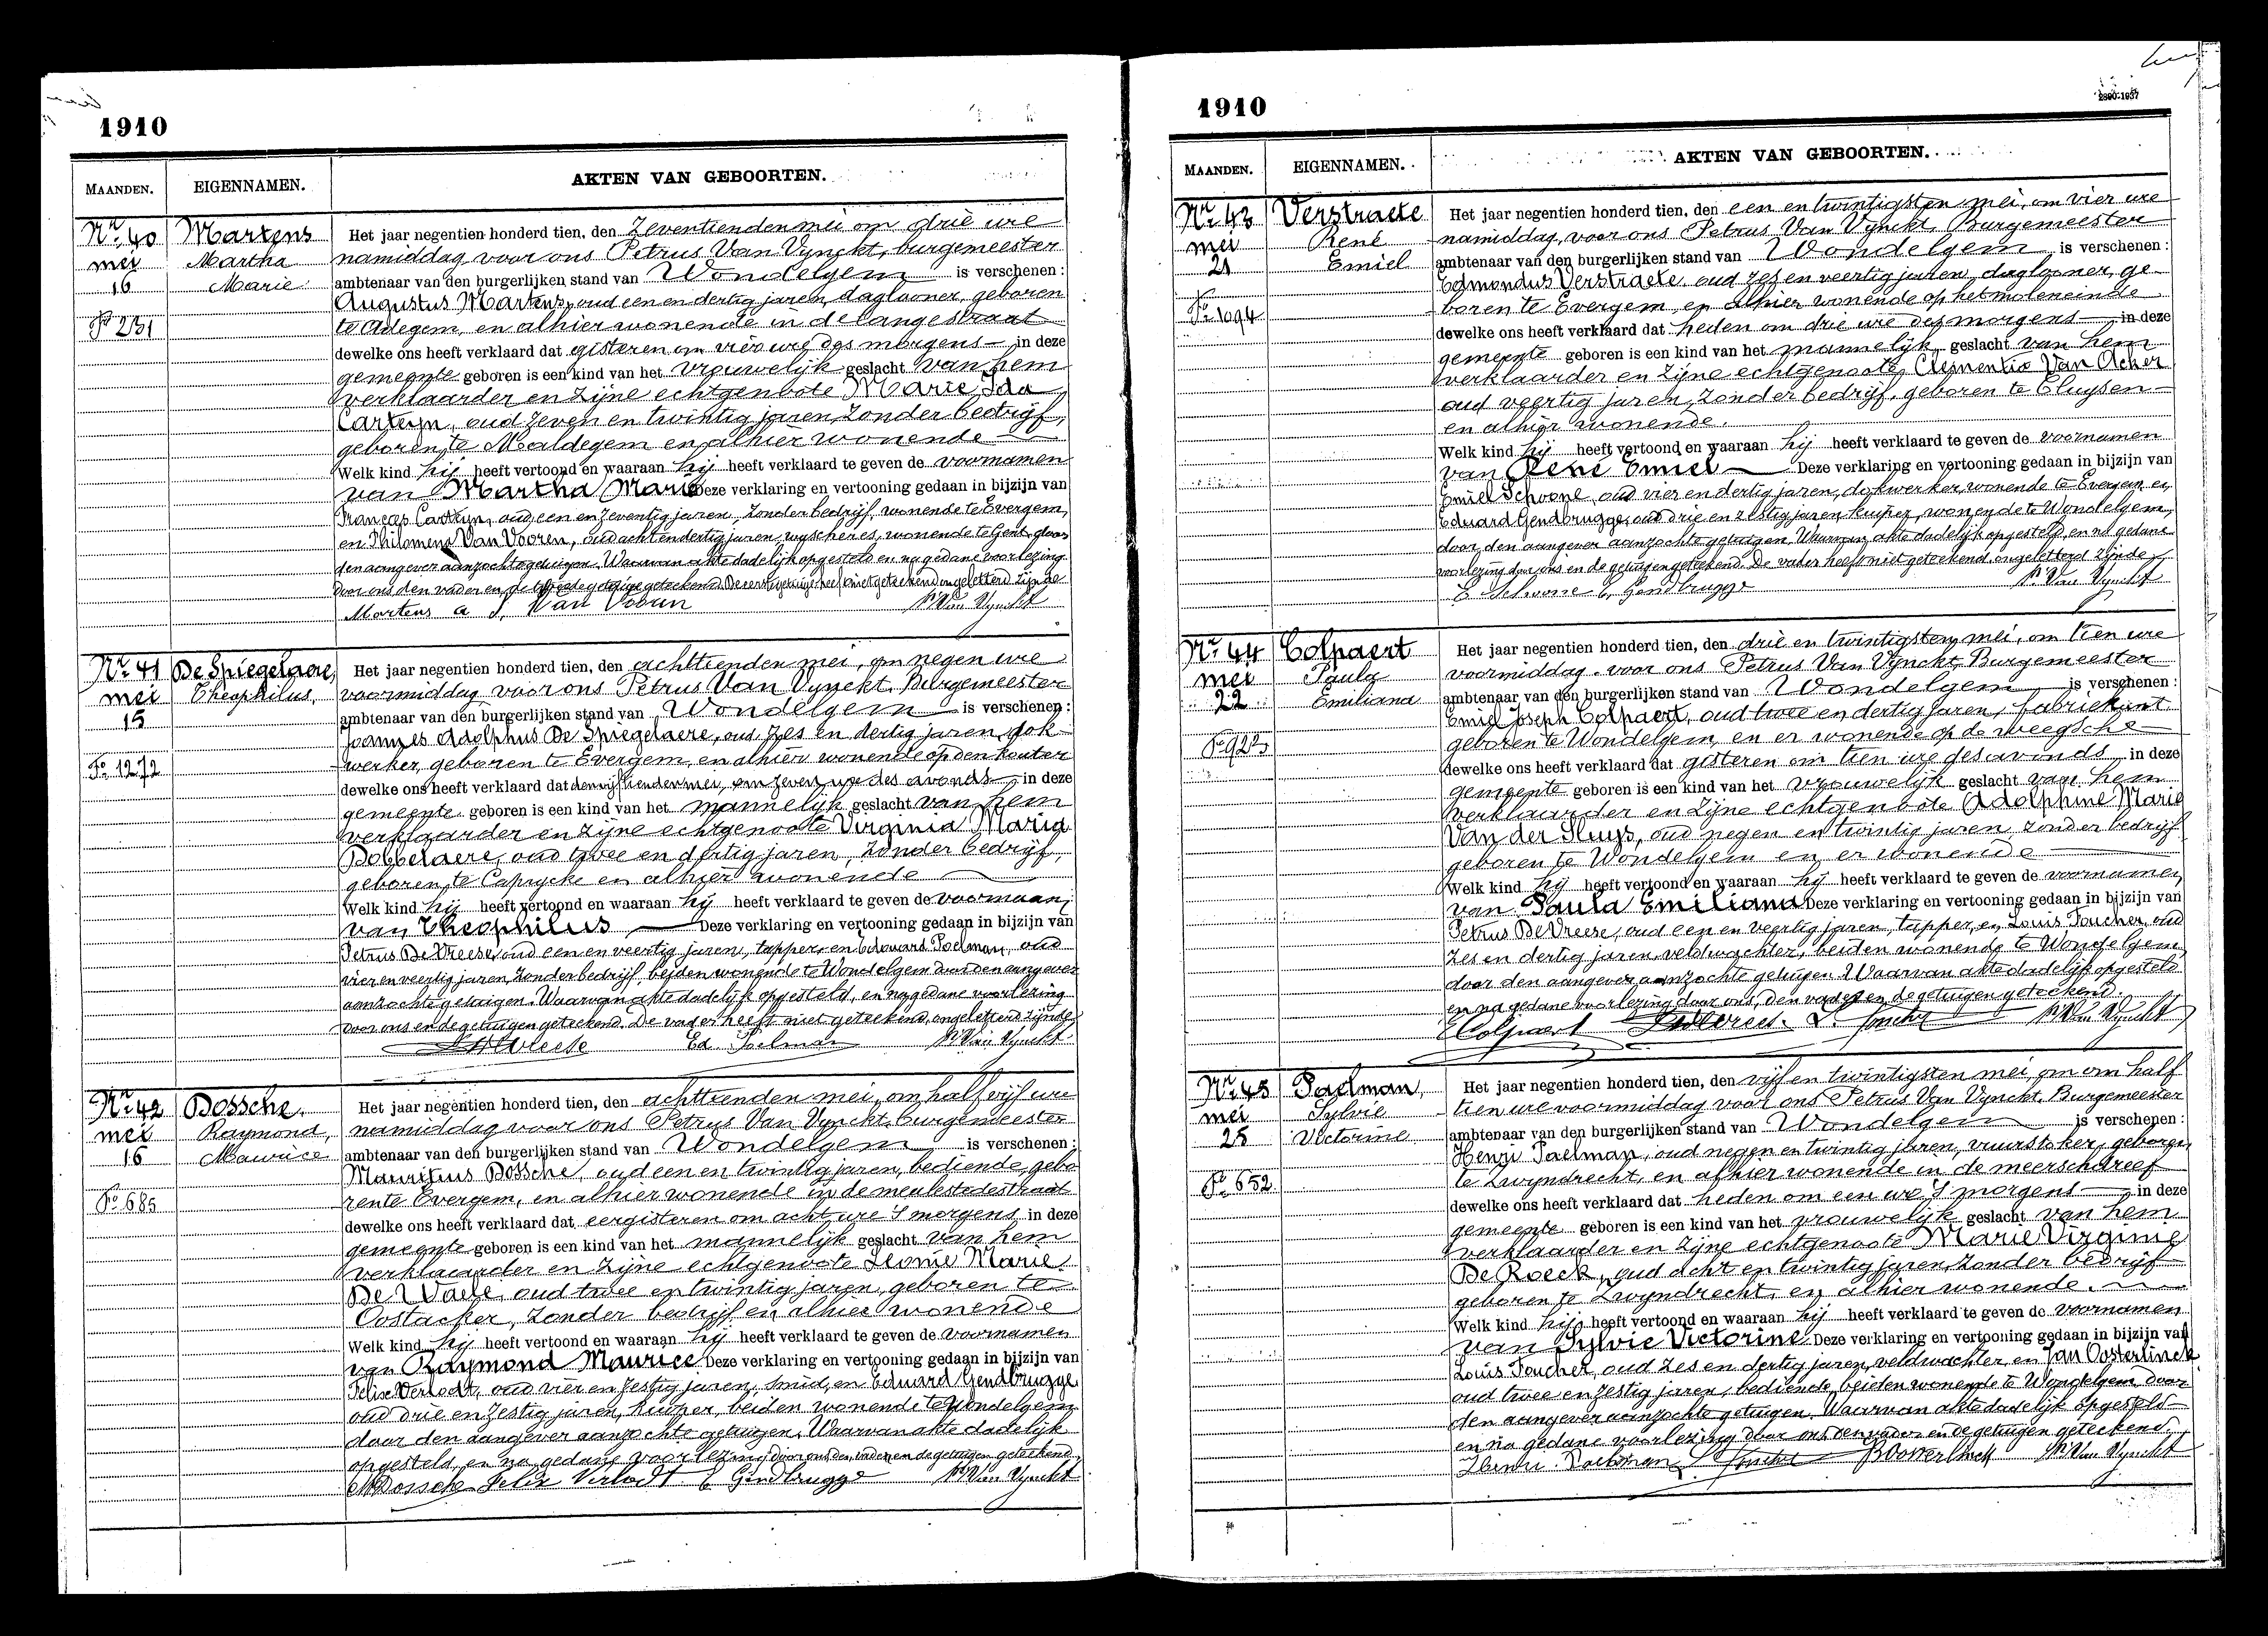 1910
MAANDEN. EIGENNAMEN. AKTEN VAN GEBOORTEN.
Nr. 40
mei
16
Fo 231
Martens
Martha
Marie
Het jaar negentien honderd tien, den zeventienden mei om drie ure
namiddag voor ons Petrus Van Vynckt, burgemeester
ambtenaar van den burgerlijken stand van Wondelgem is verschenen :
Augustus Martens, oud een en dertig jaren, daglooner, geboren
te Adegem, en alhier wonende in de langestraat
dewelke ons heeft verklaard dat gisteren om vier ure des morgens in deze
gemeente geboren is een kind van het vrouwelijk geslacht van hem
verklaarder en zijne echtgenoote Marie Ida
Carteyn, oud zeven en twintig jaren, zonder bedrijf,
geboren te Maldegem en alhier wonende
Welk kind hij heeft vertoond en waaraan hij heeft verklaard te geven de voornamen
van Martha Marie Deze verklaring en vertooning gedaan in bijzijn van
Frances Carteyn, oud een en zeventig jaren, zonder bedrijf, wonende te Evergem,
en Philomena Van Vooren, oud acht en dertig jaren, wonende te Gent, door
den aangever aanzochte getuigen. Waarvan akte dadelijk opgesteld en na gedane voorlezing
door ons den vader en de tweede getuige geteekend. De eerste getuige heeft niet geteekend ongeletterd zijnde
Martens a P. Van Vooren P. Van Vynckt
Nr. 41
mei
15
Fo. 1272
De Spiegelaere,
Theophilus,
Het jaar negentien honderd tien, den achttienden mei, om negen ure
voormiddag voor ons Petrus Van Vynckt, Burgemeester
ambtenaar van den burgerlijken stand van Wondelgem is verschenen :
Joannes Adolphus De Spiegelaere, oud zes en dertig jaren, dok-
werker, geboren te Evergem, en alhier wonende op den kouter
dewelke ons heeft verklaard dat den vijftienden mei, om zeven ure des avonds in deze
gemeente geboren is een kind van het mannelijk geslacht van hem
verklaarder en zijne echtgenoote Virginia Maria
Dobbelaere, oud twee en dertig jaren, zonder bedrijf,
geboren te Caprycke en alhier wonende
Welk kind hij heeft vertoond en waaraan hij heeft verklaard te geven de voornaam
van Theophilus Deze verklaring en vertooning gedaan in bijzijn van
Petrus De Vreese, oud een en veertig jaren, tapper, en Edouard Poelman, oud
vier en veertig jaren, zonder bedrijf, beiden wonende te Wondelgem door den aangever
aanzochte getuigen. Waarvan akte dadelijk opgesteld, en na gedane voorlezing
door ons en de getuigen geteekend. De vader heeft niet geteekend, ongeletterd zijnde
Ed. Poelman P. Van Vynckt
Nr. 42
mei
16
Fo. 685
Dossche,
Raymond,
Maurice
Het jaar negentien honderd tien, den achttienden mei, om half vijf ure
namiddag voor ons Petrus Van Vynckt, burgemeester
ambtenaar van den burgerlijken stand van Wondelgem is verschenen :
Mauritius Dossche, oud een en twintig jaren, bediende, gebo
ren te Evergem, en alhier wonende in de meulestedestraat
dewelke ons heeft verklaard dat eergisteren om acht ure 's morgens in deze
gemeente geboren is een kind van het mannelijk geslacht van hem
verklaarder en zijne echtgenoote Leonie Marie
De Waele, oud twee en twintig jaren, geboren te
Oostacker, zonder bedrijf en alhier wonende
Welk kind hij heeft vertoond en waaraan hij heeft verklaard te geven de voornamen
van Raymond Maurice Deze verklaring en vertooning gedaan in bijzijn van
Felix Verlodt, oud vier en zestig jaren, smid, en Eduard Gendbrugge
oud drie en zestig jaren, kuiper, beiden wonende te Wondelgem
door den aangever aanzochte getuigen. Waarvan akte dadelijk
opgesteld, en na gedane voorlezing door ons den vader en de getuigen geteekend
M Dossche Felix Verlodt E Gendbrugge P. Van Vynckt
1910
MAANDEN. EIGENNAMEN. AKTEN VAN GEBOORTEN.
Nr. 43
mei
21
Fo. 1094
Verstraete
René
Emiel
Het jaar negentien honderd tien, den een en twintigsten mei, om vier ure
namiddag, voor ons Petrus Van Vynckt, Burgemeester
ambtenaar van den burgerlijken stand van Wondelgem is verschenen :
Edmondus Verstraete, oud zes en veertig jaren, daglooner, ge-
boren te Evergem, en alhier wonende op het moleneinde
dewelke ons heeft verklaard dat heden om drie ure des morgens in deze
gemeente geboren is een kind van het mannelijk geslacht van hem
verklaarder en zijne echtgenoote Clementia Van Acker
oud veertig jaren, zonder bedrijf, geboren te Cluysen
en alhier wonende.
Welk kind hij heeft vertoond en waaraan hij heeft verklaard te geven de voornamen
van René Emiel Deze verklaring en vertooning gedaan in bijzijn van
Emiel Schoone, oud vier en dertig jaren, dokwerker, wonende te Evergem en
Eduard Gendbrugge, oud drie en zestig jaren kuiper, wonende te Wondelgem,
door den aangever aanzochte getuigen. Waarvan akte dadelijk opgesteld, en na gedane
voorlezing door ons en de getuigen geteekend. De vader heeft niet geteekend ongeletterd zijnde
E Schoone E. Gendbrugge P. Van Vynckt
Nr. 44
mei
22
Fo 922
Colpaert
Paula
Emiliana
Het jaar negentien honderd tien, den drie en twintigsten mei, om tien ure
voormiddag, voor ons Petrus Van Vynckt, Burgemeester
ambtenaar van den burgerlijken stand van Wondelgem is verschenen :
Emiel Joseph Colpaert, oud twee en dertig jaren, fabriekant
geboren te Wondelgem, en er wonende op de weegsche
dewelke ons heeft verklaard dat gisteren om tien ure des avonds in deze
gemeente geboren is een kind van het vrouwelijk geslacht van hem
verklaarder en zijne echtgenoote Adolphine Marie
Van der Sluys, oud negen en twintig jaren, zonder bedrijf
geboren te Wondelgem en er wonende
Welk kind hij heeft vertoond en waaraan hij heeft verklaard te geven de voornamen
van Paula Emiliana Deze verklaring en vertooning gedaan in bijzijn van
Petrus De Vreese, oud een en veertig jaren, tapper, en Louis Foucher, oud
zes en dertig jaren, veldwachter, beiden wonende te Wondelgem,
door den aangever aanzochte getuigen. Waarvan akte dadelijk opgesteld
en na gedane voorlezing door ons, den vader en de getuigen geteekend.
E Colpaert L. Foucher P. Van Vynckt
Nr. 45
mei
25
Fo. 652
Paelman,
Sylvie
Victorine
Het jaar negentien honderd tien, den vijf en twintigsten mei, om om half
tien ure voormiddag voor ons Petrus Van Vynckt, Burgemeester
ambtenaar van den burgerlijken stand van Wondelgem is verschenen :
Henri Paelman, oud negen en twintig jaren, vuurstoker, geboren
te Zwyndrecht, en alhier wonende in de meerschdreef
dewelke ons heeft verklaard dat heden om een ure 's morgens in deze
gemeente geboren is een kind van het vrouwelijk geslacht van hem
verklaarder en zijne echtgenoote Marie Virginie
De Roeck, oud acht en twintig jaren, zonder bedrijf
geboren te Zwyndrecht, en alhier wonende.
Welk kind hij heeft vertoond en waaraan hij heeft verklaard te geven de voornamen
van Sylvie Victorine Deze verklaring en vertooning gedaan in bijzijn van
Louis Foucher, oud zes en dertig jaren, veldwachter, en Jan Oosterlinck
oud twee en zestig jaren, bediende, beiden wonende te Wondelgem, door
den aangever aanzochte getuigen. Waarvan akte dadelijk opgesteld
en na gedane voorlezing door ons den vader en de getuigen geteekend.
Henri Paelman L. Foucher J Oosterlinck P. Van Vynckt